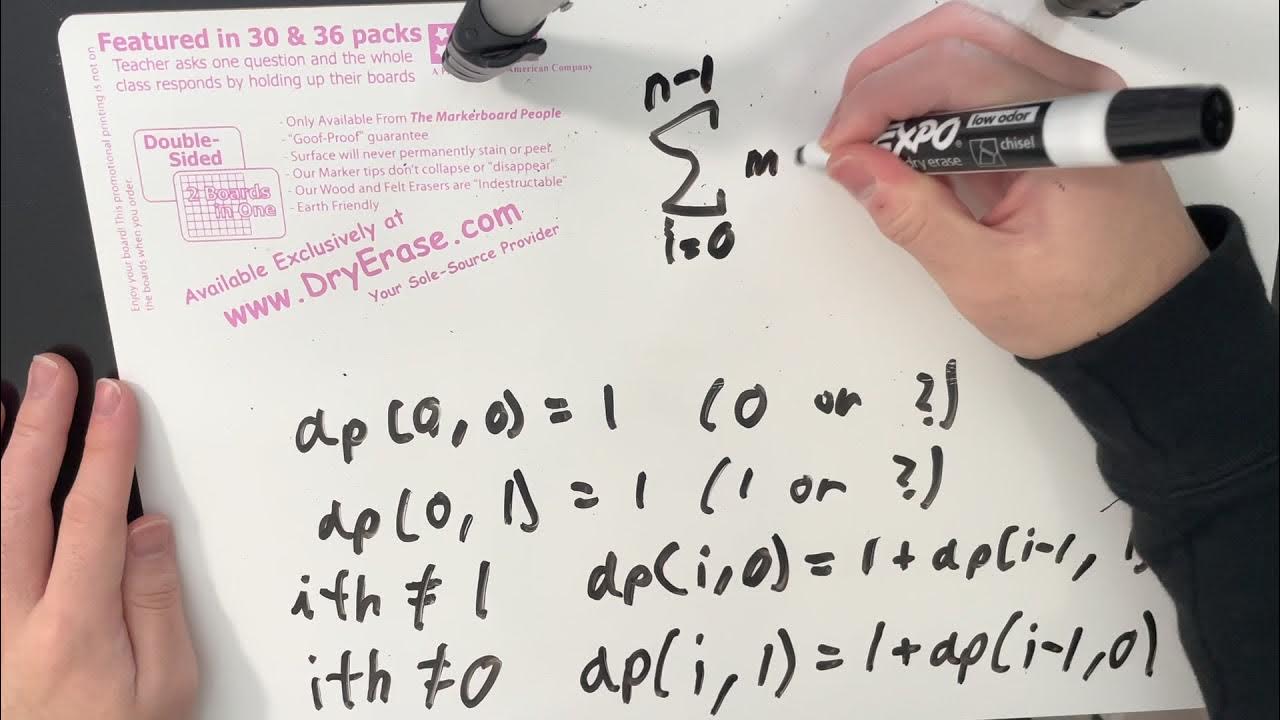 Featured in 30 & 36 packs
Teacher asks one question and the whole
class responds by holding up their boards
American Company
Enjoy your board! This promotional printing is not on
the boards when you order.
Double-
Sided
2 Boards
in One
- Only Available From The Markerboard People
- "Goof-Proof" guarantee
- Surface will never permanently stain or peel.
- Our Marker tips don't collapse or "disappear"
- Our Wood and Felt Erasers are "Indestructable"
- Earth Friendly
Available Exclusively at
www.DryErase.com
Your Sole-Source Provider
n-1
∑ m
i=0
EXPO
low odor
dry erase
chisel
dp(0,0) = 1 (0 or ?)
dp(0,1) = 1 (1 or ?)
ith ≠ 1 dp(i,0) = 1 + dp(i-1, 1)
ith ≠ 0 dp(i,1) = 1 + dp(i-1,0)